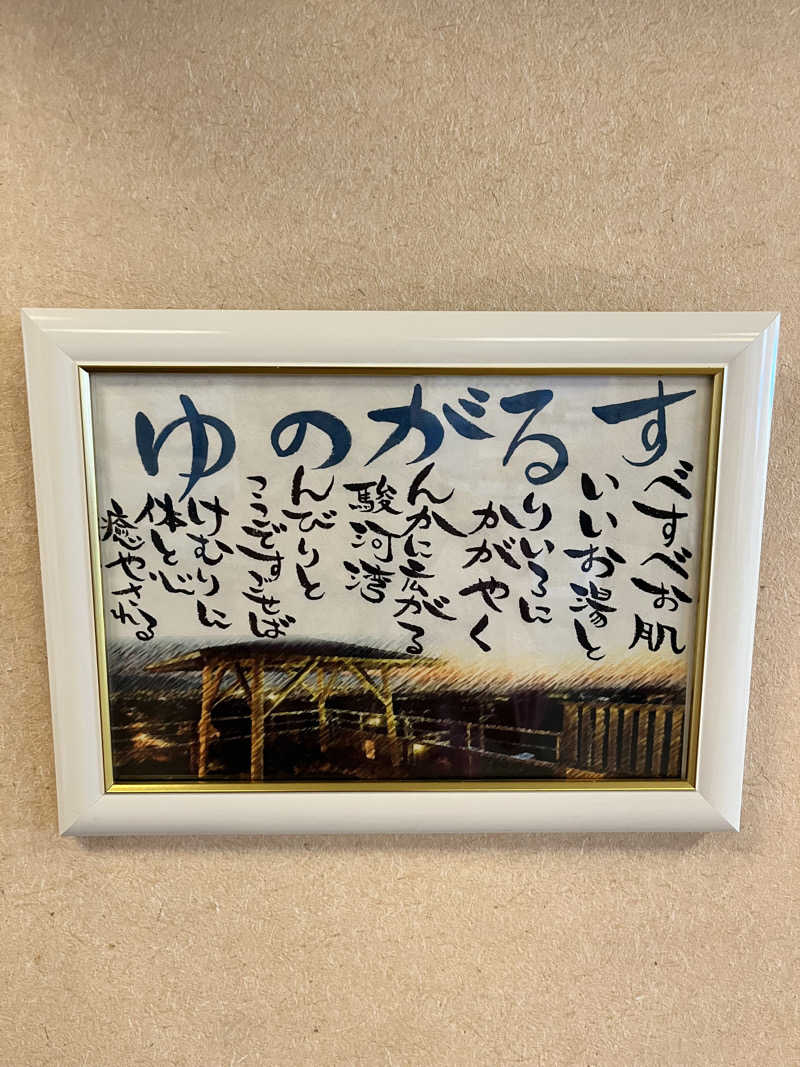 するがのゆ
べすべお肌
いいお湯と
りいろに
かがやく
んかに広がる
駿河湾
んびりと
ここですごせば
けむりに
体と心
癒やされる